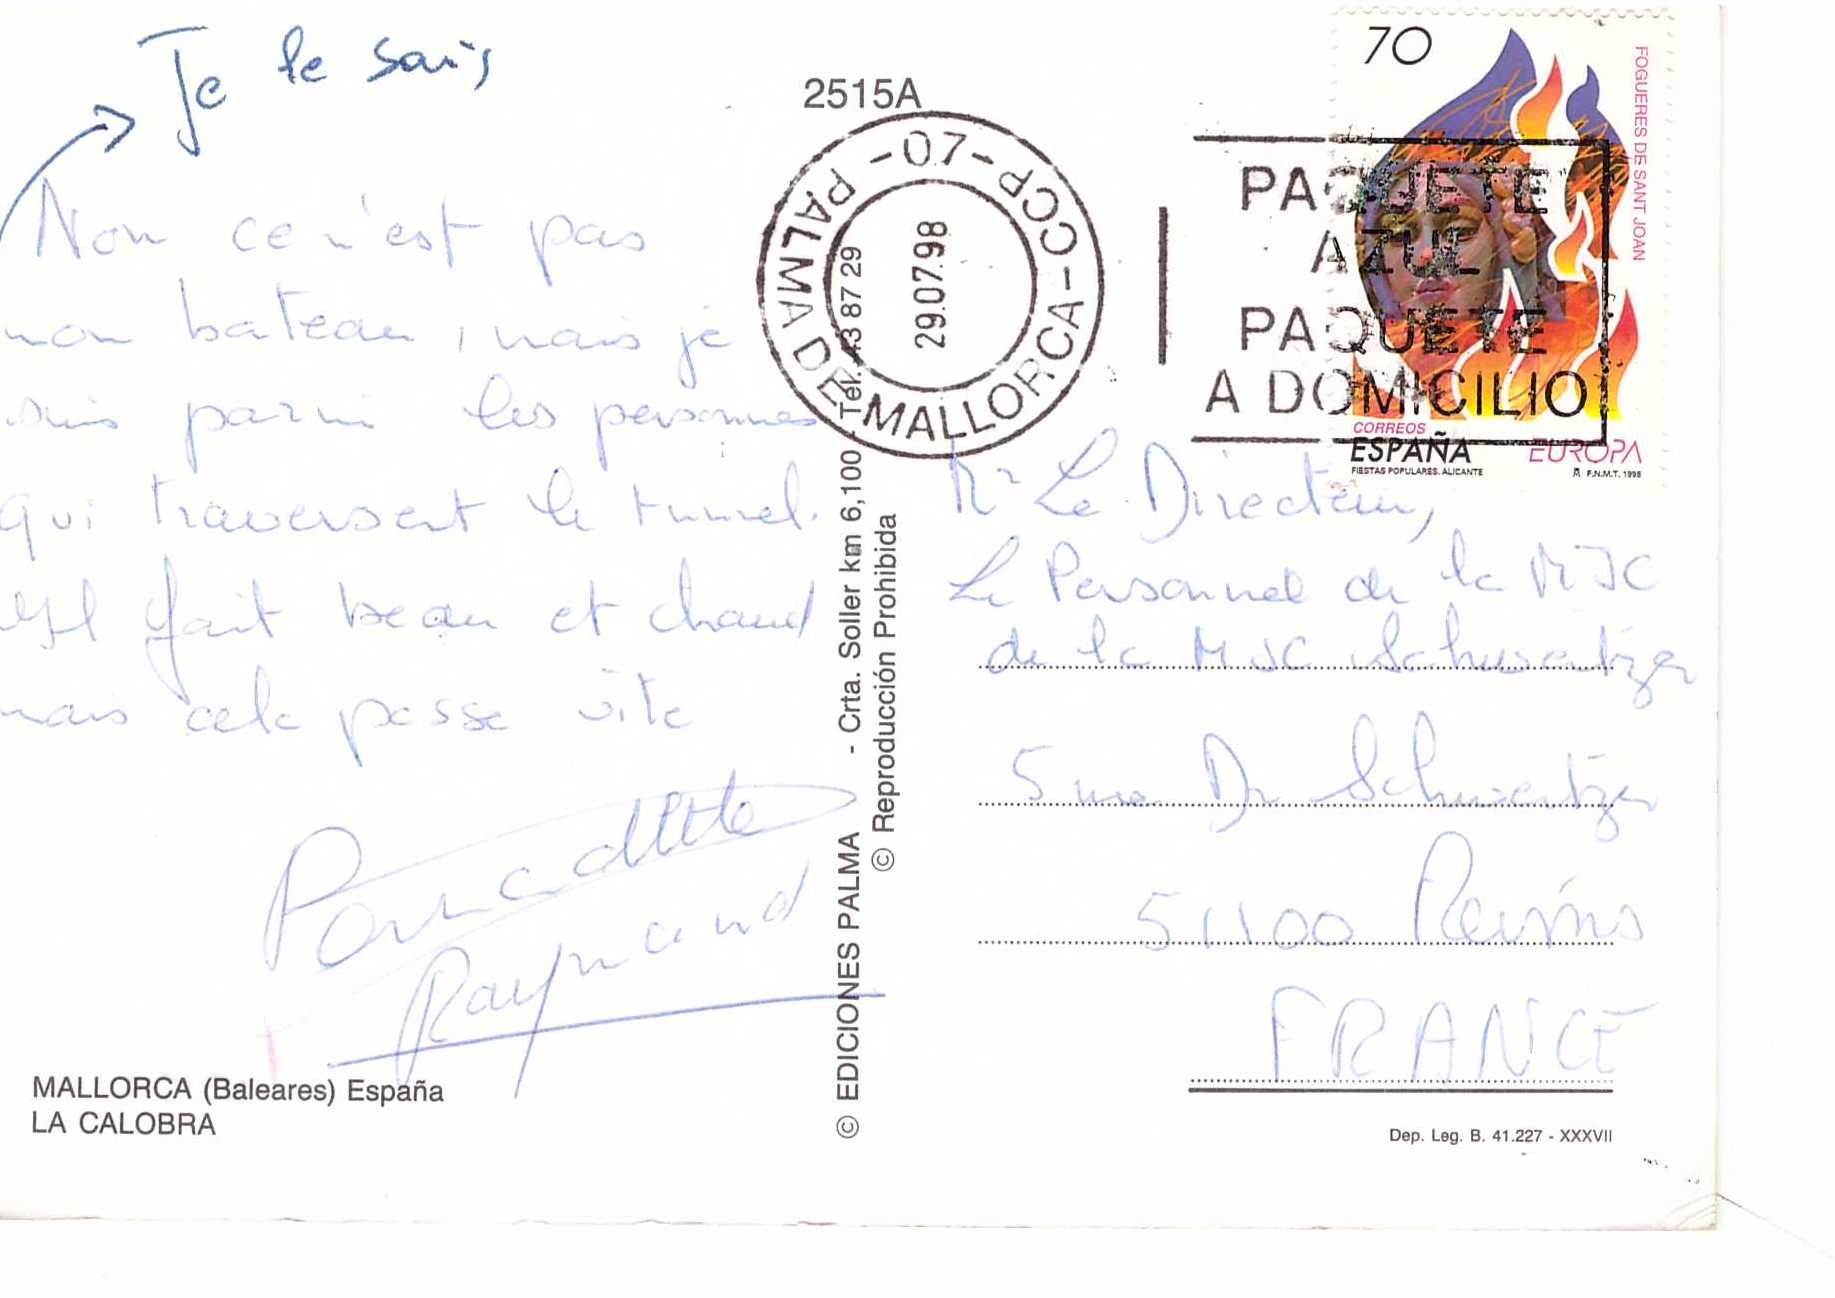 Je le sais
Non ce n'est pas
mon bateau, mais je
suis parmi les personnes
qui traversent le tunnel.
Il fait beau et chaud
mais cela passe vite
Raymond
MALLORCA (Baleares) España
LA CALOBRA
2515A
-07-
PALMA DE MALLORCA-CCP
29.07.98
PAQUETE
AZUL
PAQUETE
A DOMICILIO
70
FOGUERES DE SANT JOAN
CORREOS
ESPAÑA
EUROPA
FIESTAS POPULARES. ALICANTE
F.N.M.T. 1998
© EDICIONES PALMA - Crta. Soller km 6,100 - Tel. 43 87 29
© Reproducción Prohibida
Mr Le Directeur,
Le Personnel de la MJC
de la MJC Schweitzer
5 rue Dr Schweitzer
51100 Reims
FRANCE
Dep. Leg. B. 41.227 - XXXVII